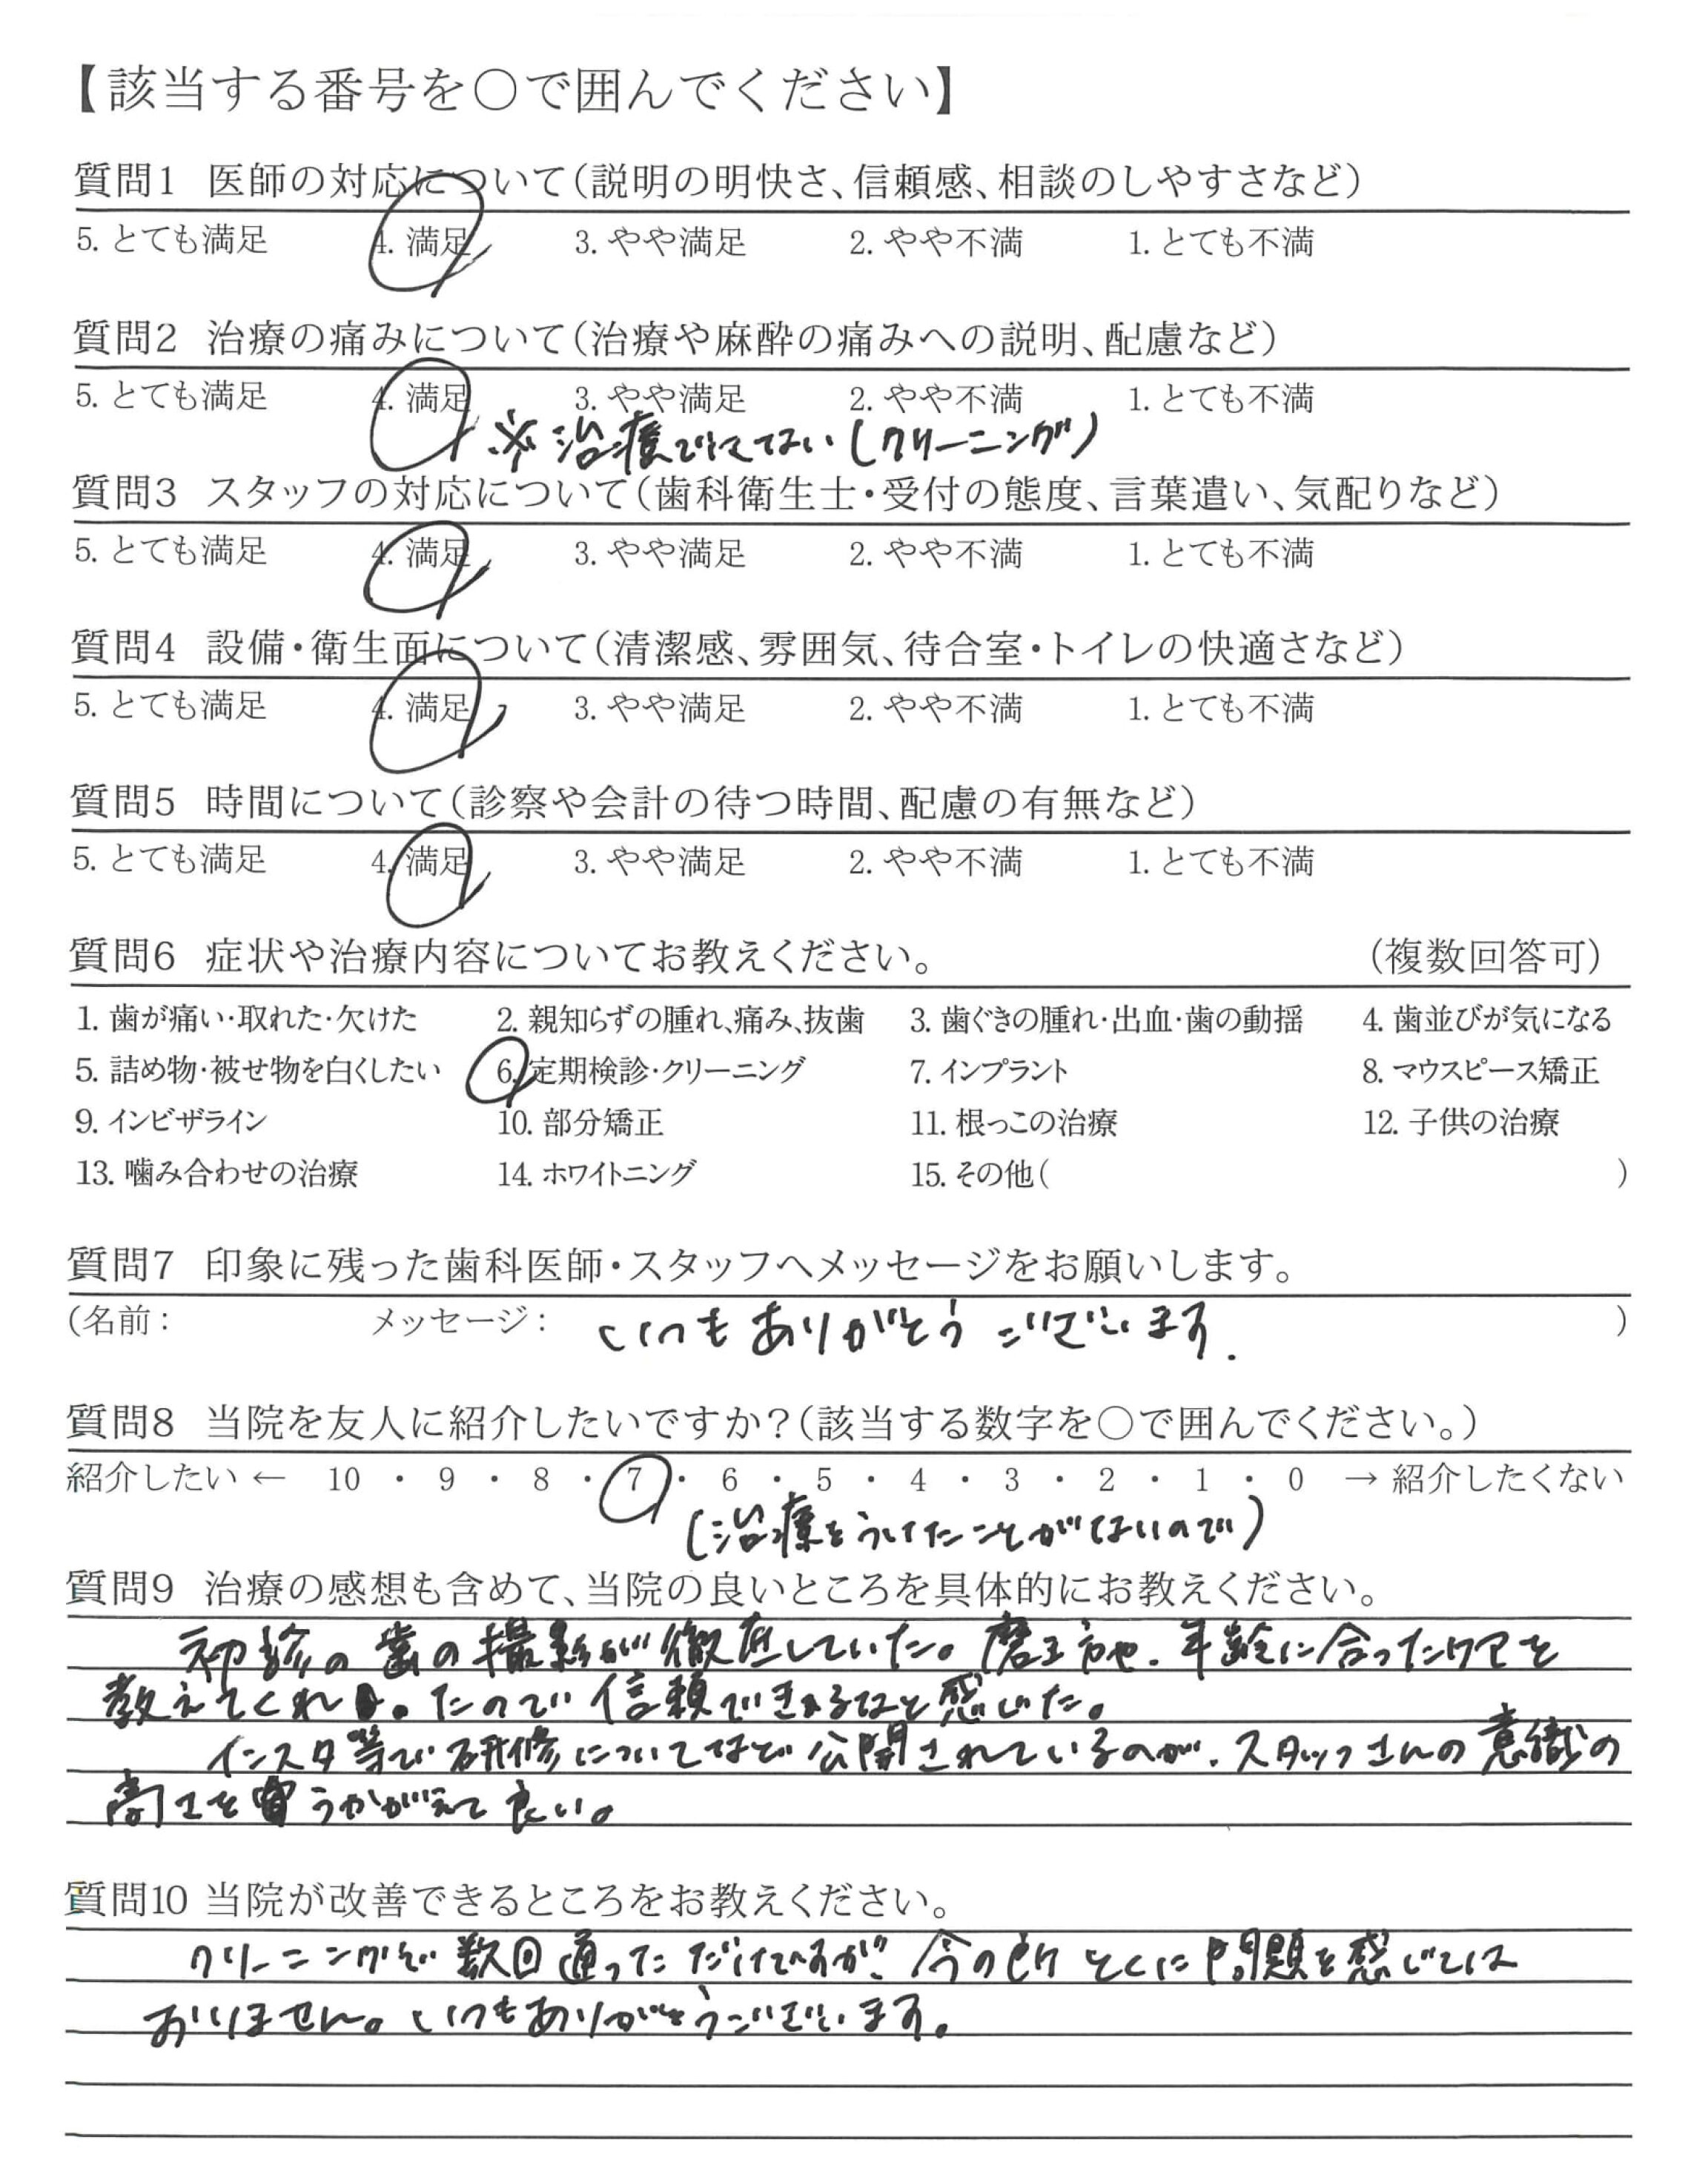 【該当する番号を○で囲んでください】
質問1 医師の対応について(説明の明快さ、信頼感、相談のしやすさなど)
5. とても満足 4. 満足 3. やや満足 2. やや不満 1. とても不満
質問2 治療の痛みについて(治療や麻酔の痛みへの説明、配慮など)
5. とても満足 4. 満足 3. やや満足 2. やや不満 1. とても不満
※治療でなくてない(クリーニング)
質問3 スタッフの対応について(歯科衛生士・受付の態度、言葉遣い、気配りなど)
5. とても満足 4. 満足 3. やや満足 2. やや不満 1. とても不満
質問4 設備・衛生面について(清潔感、雰囲気、待合室・トイレの快適さなど)
5. とても満足 4. 満足 3. やや満足 2. やや不満 1. とても不満
質問5 時間について(診察や会計の待つ時間、配慮の有無など)
5. とても満足 4. 満足 3. やや満足 2. やや不満 1. とても不満
質問6 症状や治療内容についてお教えください。 (複数回答可)
1. 歯が痛い・取れた・欠けた 2. 親知らずの腫れ、痛み、抜歯 3. 歯ぐきの腫れ・出血・歯の動揺 4. 歯並びが気になる
5. 詰め物・被せ物を白くしたい 6. 定期検診・クリーニング 7. インプラント 8. マウスピース矯正
9. インビザライン 10. 部分矯正 11. 根っこの治療 12. 子供の治療
13. 噛み合わせの治療 14. ホワイトニング 15. その他( )
質問7 印象に残った歯科医師・スタッフへメッセージをお願いします。
(名前: メッセージ: いつもありがとうございます. )
質問8 当院を友人に紹介したいですか?(該当する数字を○で囲んでください。)
紹介したい ← 10 ・ 9 ・ 8 ・ 7 ・ 6 ・ 5 ・ 4 ・ 3 ・ 2 ・ 1 ・ 0 → 紹介したくない
(治療をうけたことがないので)
質問9 治療の感想も含めて、当院の良いところを具体的にお教えください。
初診の歯の撮影が徹底していた。磨き方や、年齢に合ったケアを
教えてくれ たので信頼できるなと感じた。
インスタ等で研修についてなど公開されているのが、スタッフさんの意識の
高さをうかがえて良い。
質問10 当院が改善できるところをお教えください。
クリーニングで数回通っただけですが、今の所とくに問題を感じては
おりません。いつもありがとうございます。